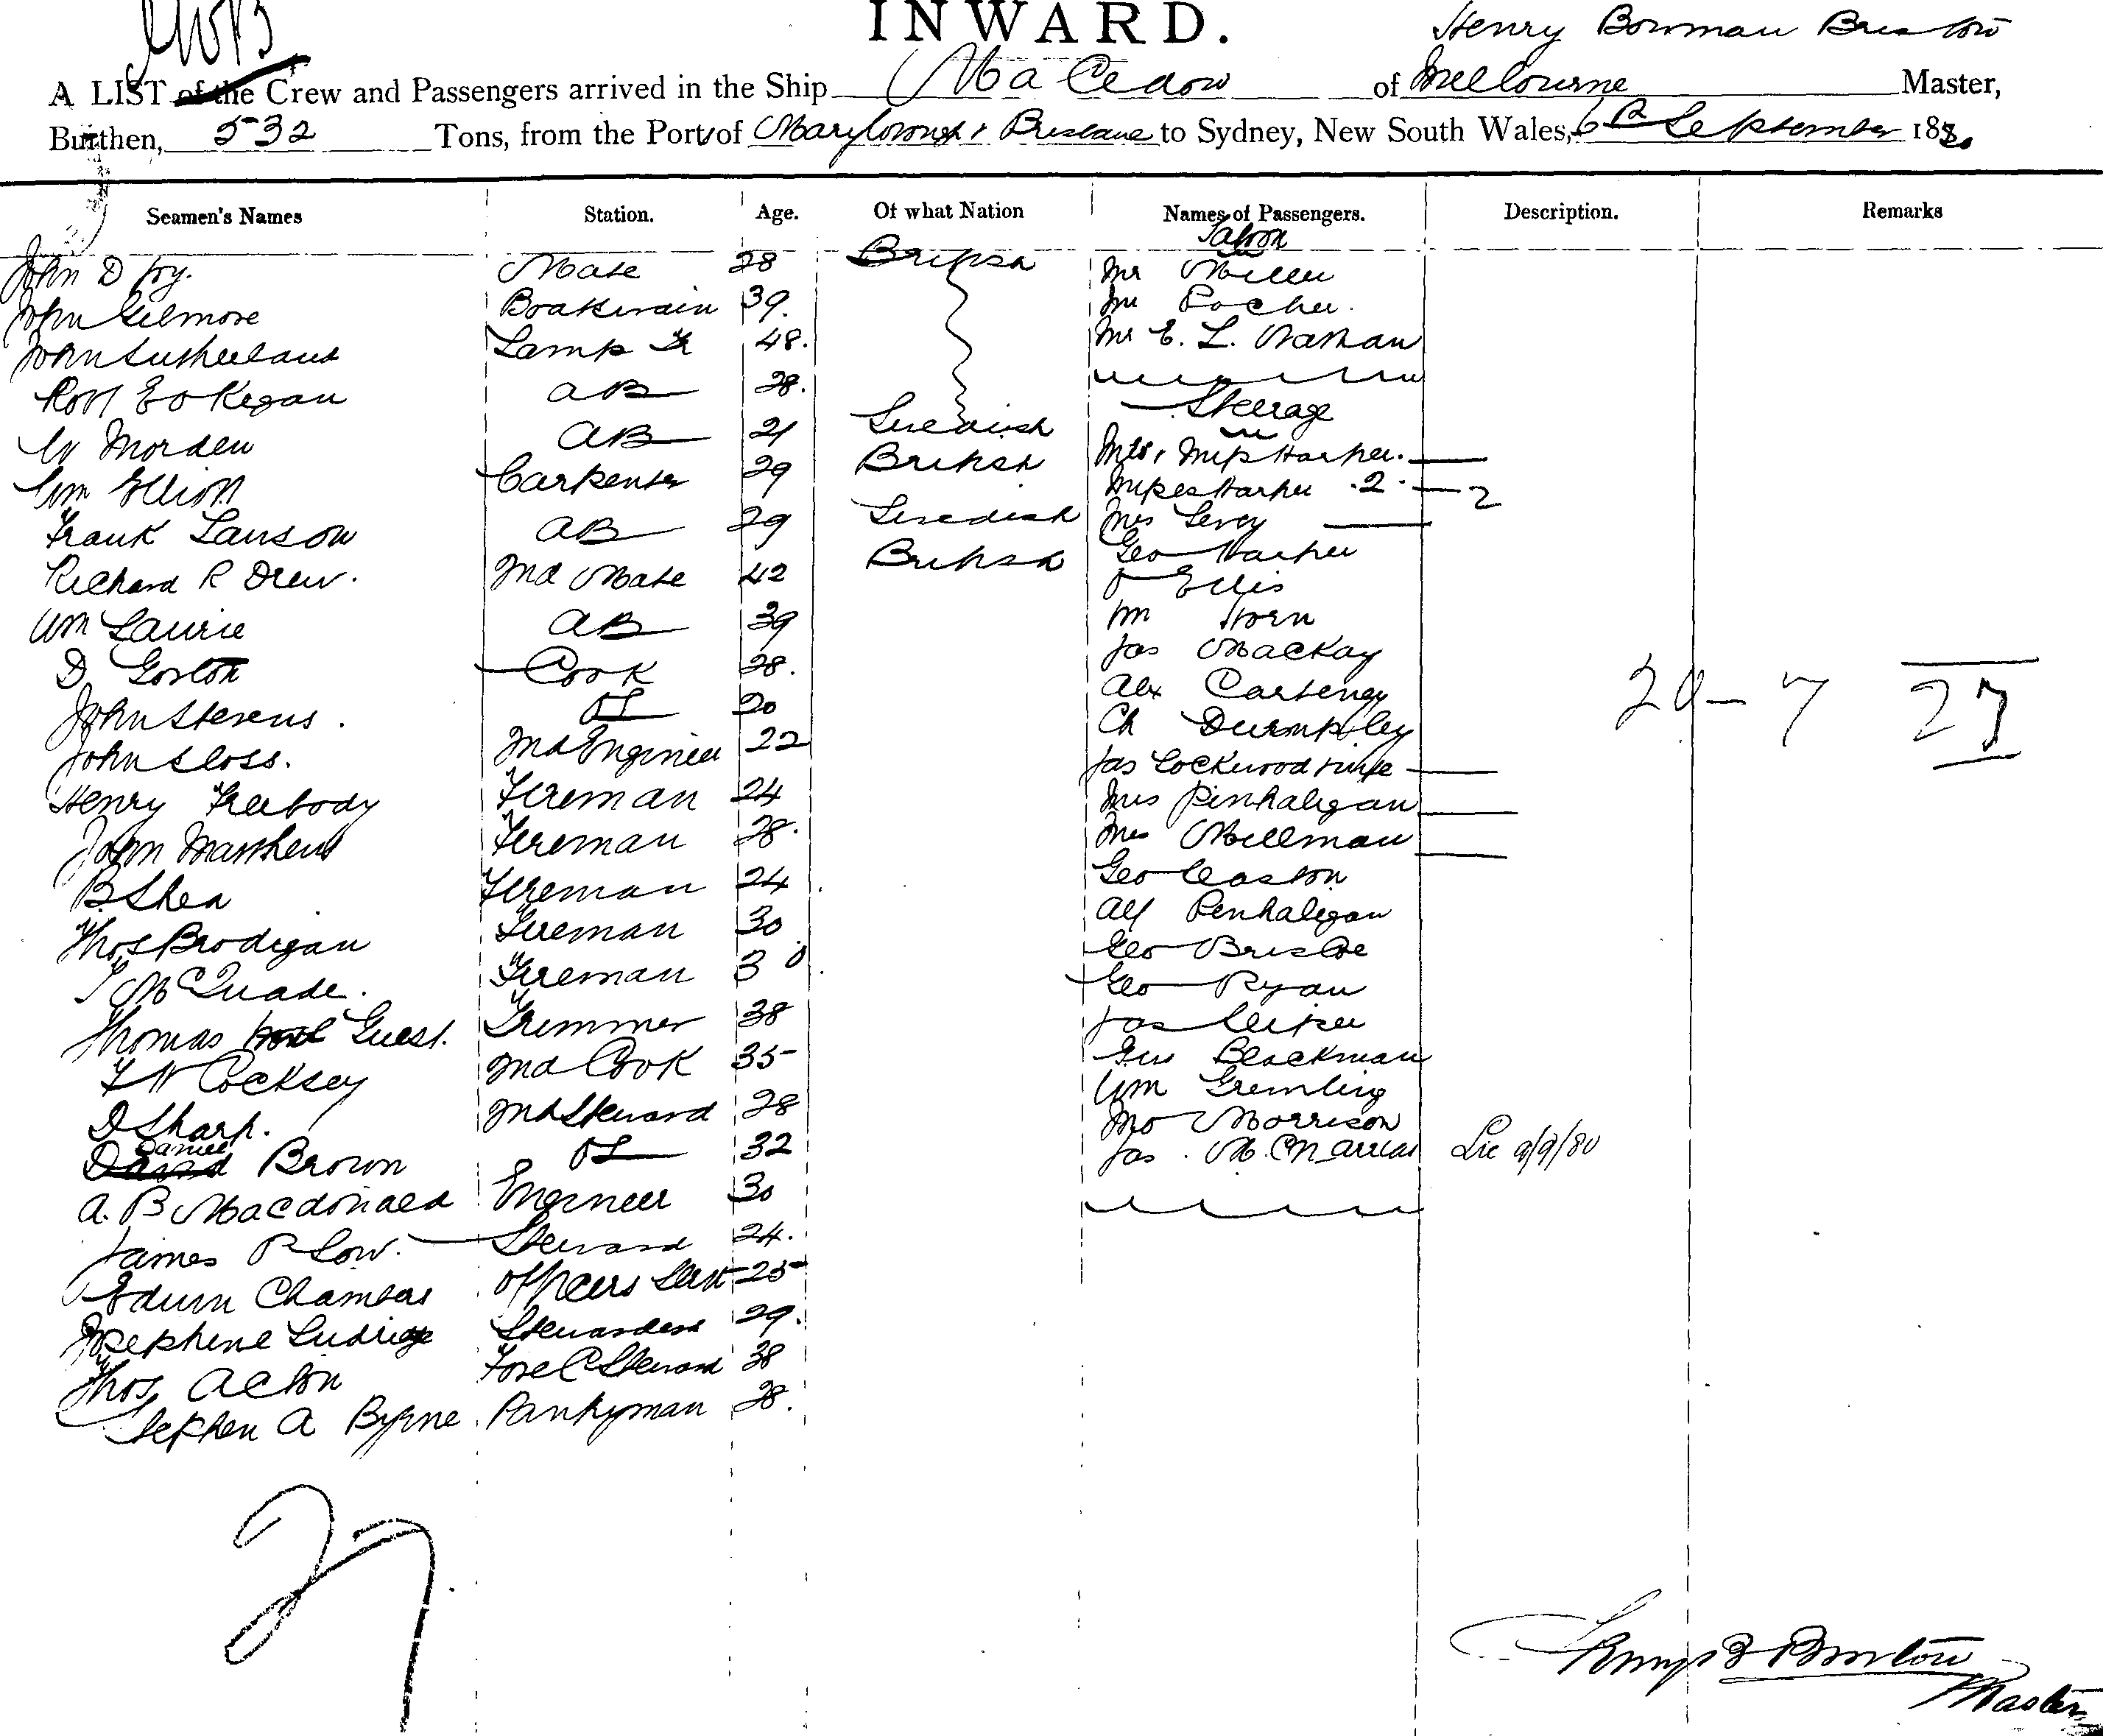 INWARD.
Henry Bowman Bristow
A LIST of the Crew and Passengers arrived in the Ship Macedon of Melbourne Master,
Burthen, 532 Tons, from the Port of Maryborough & Brisbane to Sydney, New South Wales, 6th September 1880
Seamen's Names Station. Age. Of what Nation Names of Passengers. Description. Remarks
Saloon
John D Fry. Mate 28 British Mr Miller
John Gilmore Boatswain 39. Mr
John Sutherland Lamp Tr 48. Mr E. L. Nathan
Robt Keegan AB 28.
Steerage
Morden AB 21 Swedish Mrs & Miss Harper.
Wm Elliott Carpenter 29 British Misses Harper 2 2
Frank Lawson AB 29 Swedish Mrs Levey
Richard R Drew. 2nd Mate 42 British Geo Harper
Ellis
Wm Laurie AB 39 Wm Horn
D Gorton Cook 28. Jas Mackay
John Stevens. OS 20 Alex
20 - 7 27
John Sloss. 2nd Engineer 22 Ch
Jas Lockwood & wife
Henry Freebody Fireman 24 Mrs Penhaligan
John Matthews Fireman 28. Mrs Millman
B. Shea Fireman 24 Geo
Thos Brodigan Fireman 30 Alf Penhaligan
Geo Briscoe
McQuade. Fireman 30. Geo Ryan
Thomas Guest. Trimmer 38 Jas
F W Cocksey 2nd Cook 35 Blackman
D Sharp. 2nd Steward 28 Wm Gremling
Daniel
David Brown OS 32 Jno Morrison
Jas. 9/9/80
A. B Macdonald Engineer 30
James P Low. Steward 24.
Edwin Chambers Officers Servt 25
Josephine Stewardess 29.
Thos Acton Fore C Steward 38
Stephen A Byrne Pantryman 28.
27
Henry B Bristow
Master